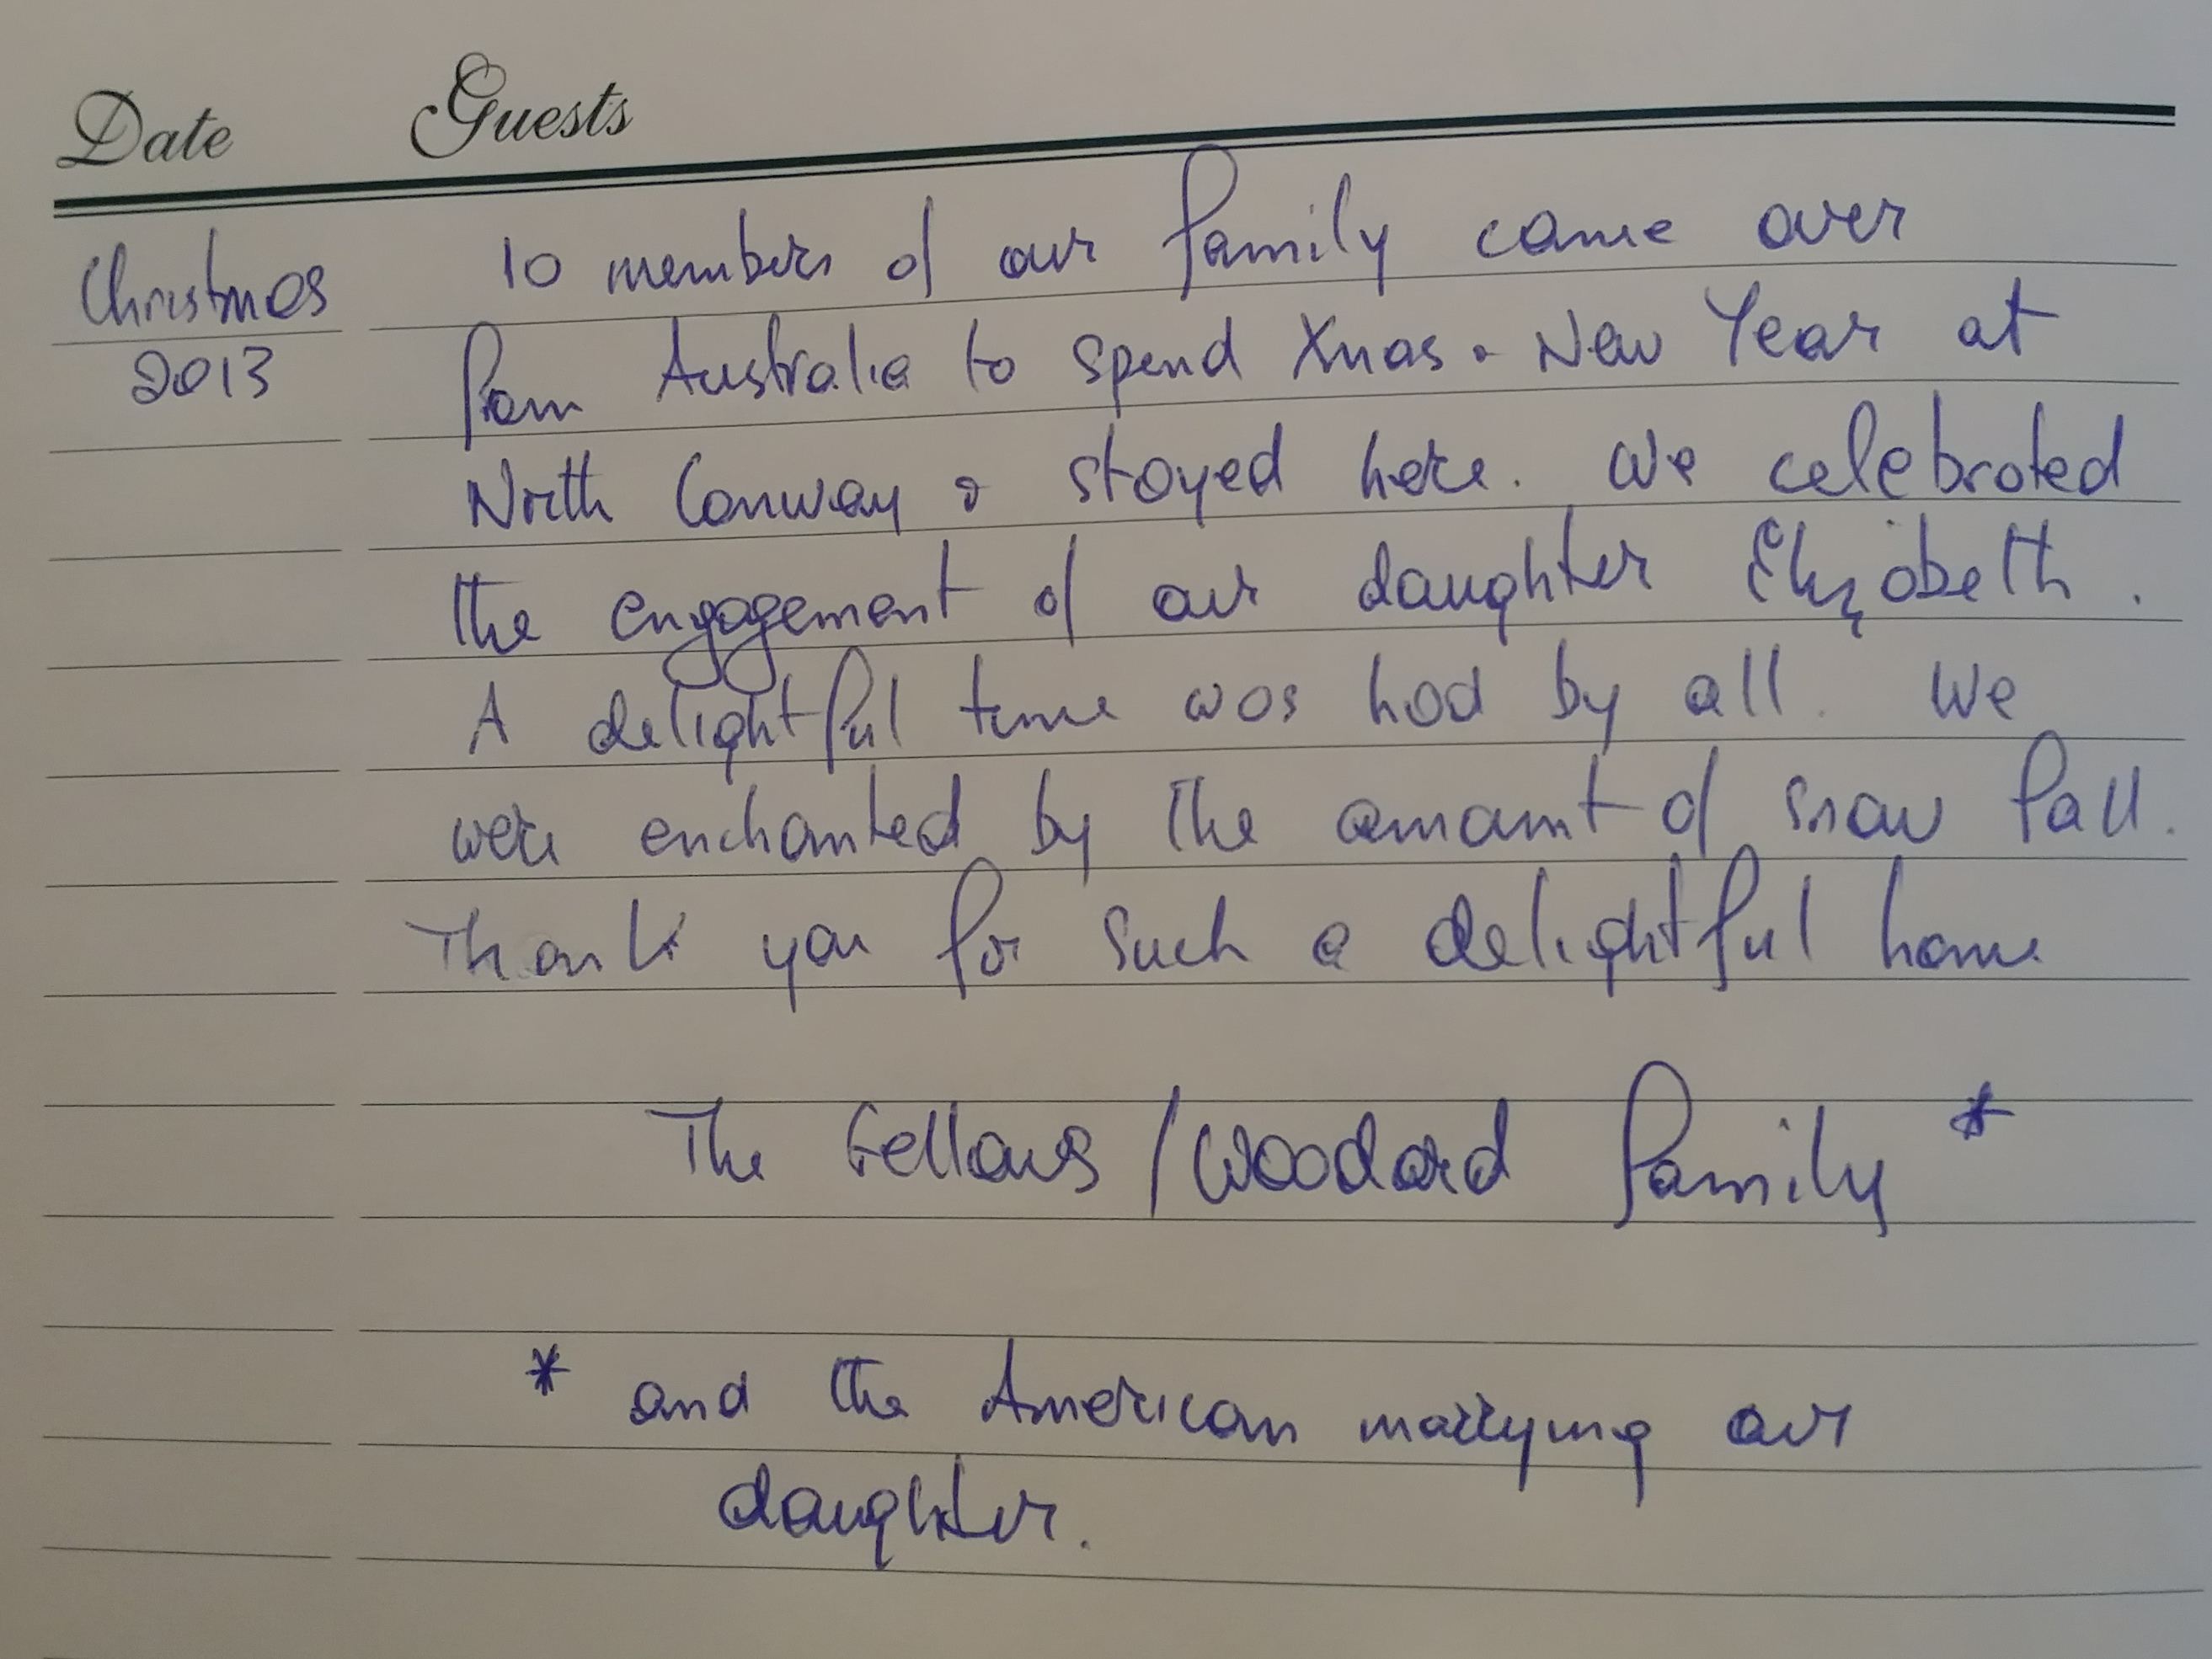 Date Guests
Christmas 10 members of our family came over
2013 from Australia to spend Xmas & New Year at
North Conway & stayed here. We celebrated
the engagement of our daughter Elizabeth.
A delightful time was had by all. We
were enchanted by the amount of snow fall.
Thank you for such a delightful home
The Fellows / Woodard family *
* and the American marrying our
daughter.